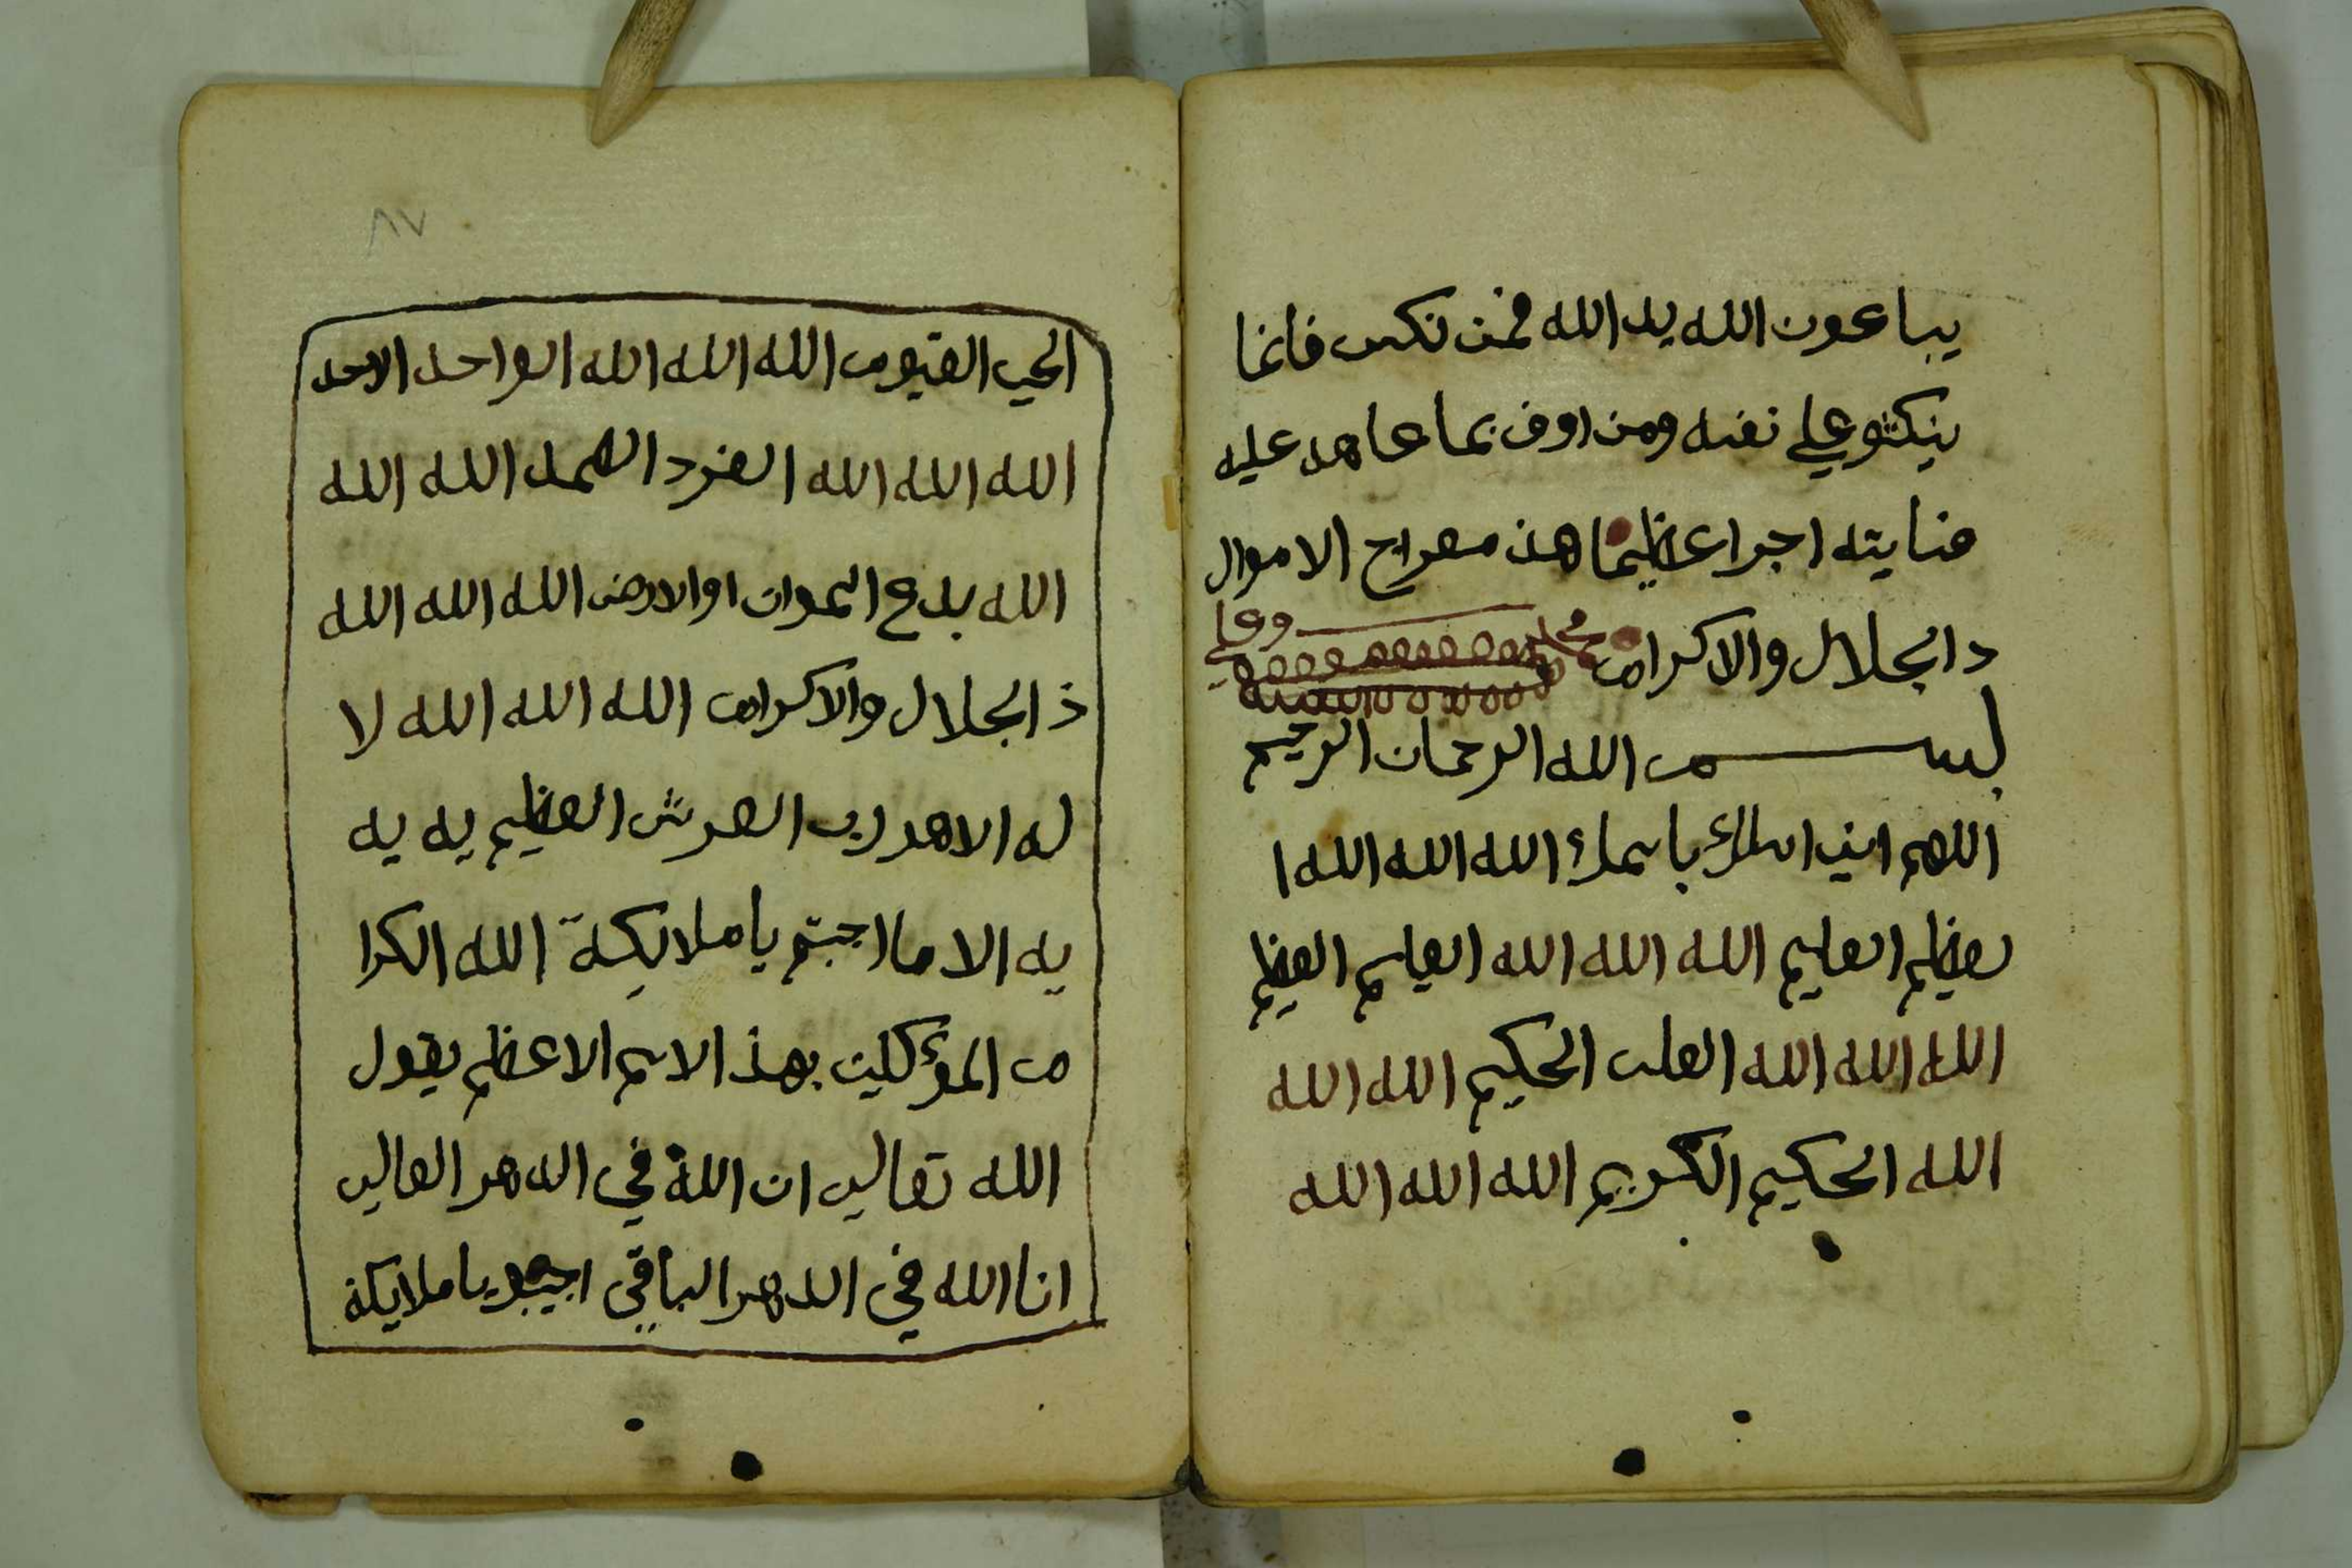 يباعون الله يد الله فمن نكس فانما
ينكثو علي نفسه ومن اوف بما عاهد عليه
منايته اجرا عظيما هذ معراج الاموال
د الجلال والاكرام محمد وعلي
بسم الله الرحمان الرحيم
اللهم اني اسلك باسمك الله الله الله ا
لعظيم العليم الله الله الله العليم العظيم
الله الله الله العلي الحكيم الله الله
الله الحكيم الكريم الله الله الله
٨٧
الحي القيوم الله الله الله الواحد الاحد
الله الله الله الفرد الصمد الله الله
الله بدع السموات اوالارض الله الله الله
ذ الجلال والاكرام الله الله الله لا
له الاهو رب العرش العظيم يه يه
يه الا ما اجبتم يا ملائكة الله الكرا
م المؤكلين بهذ الاسم الاعظم يقول
الله تعالي ان الله في الدهر العالي
انا الله في الدهر الباقي اجيبو يا ملايكة